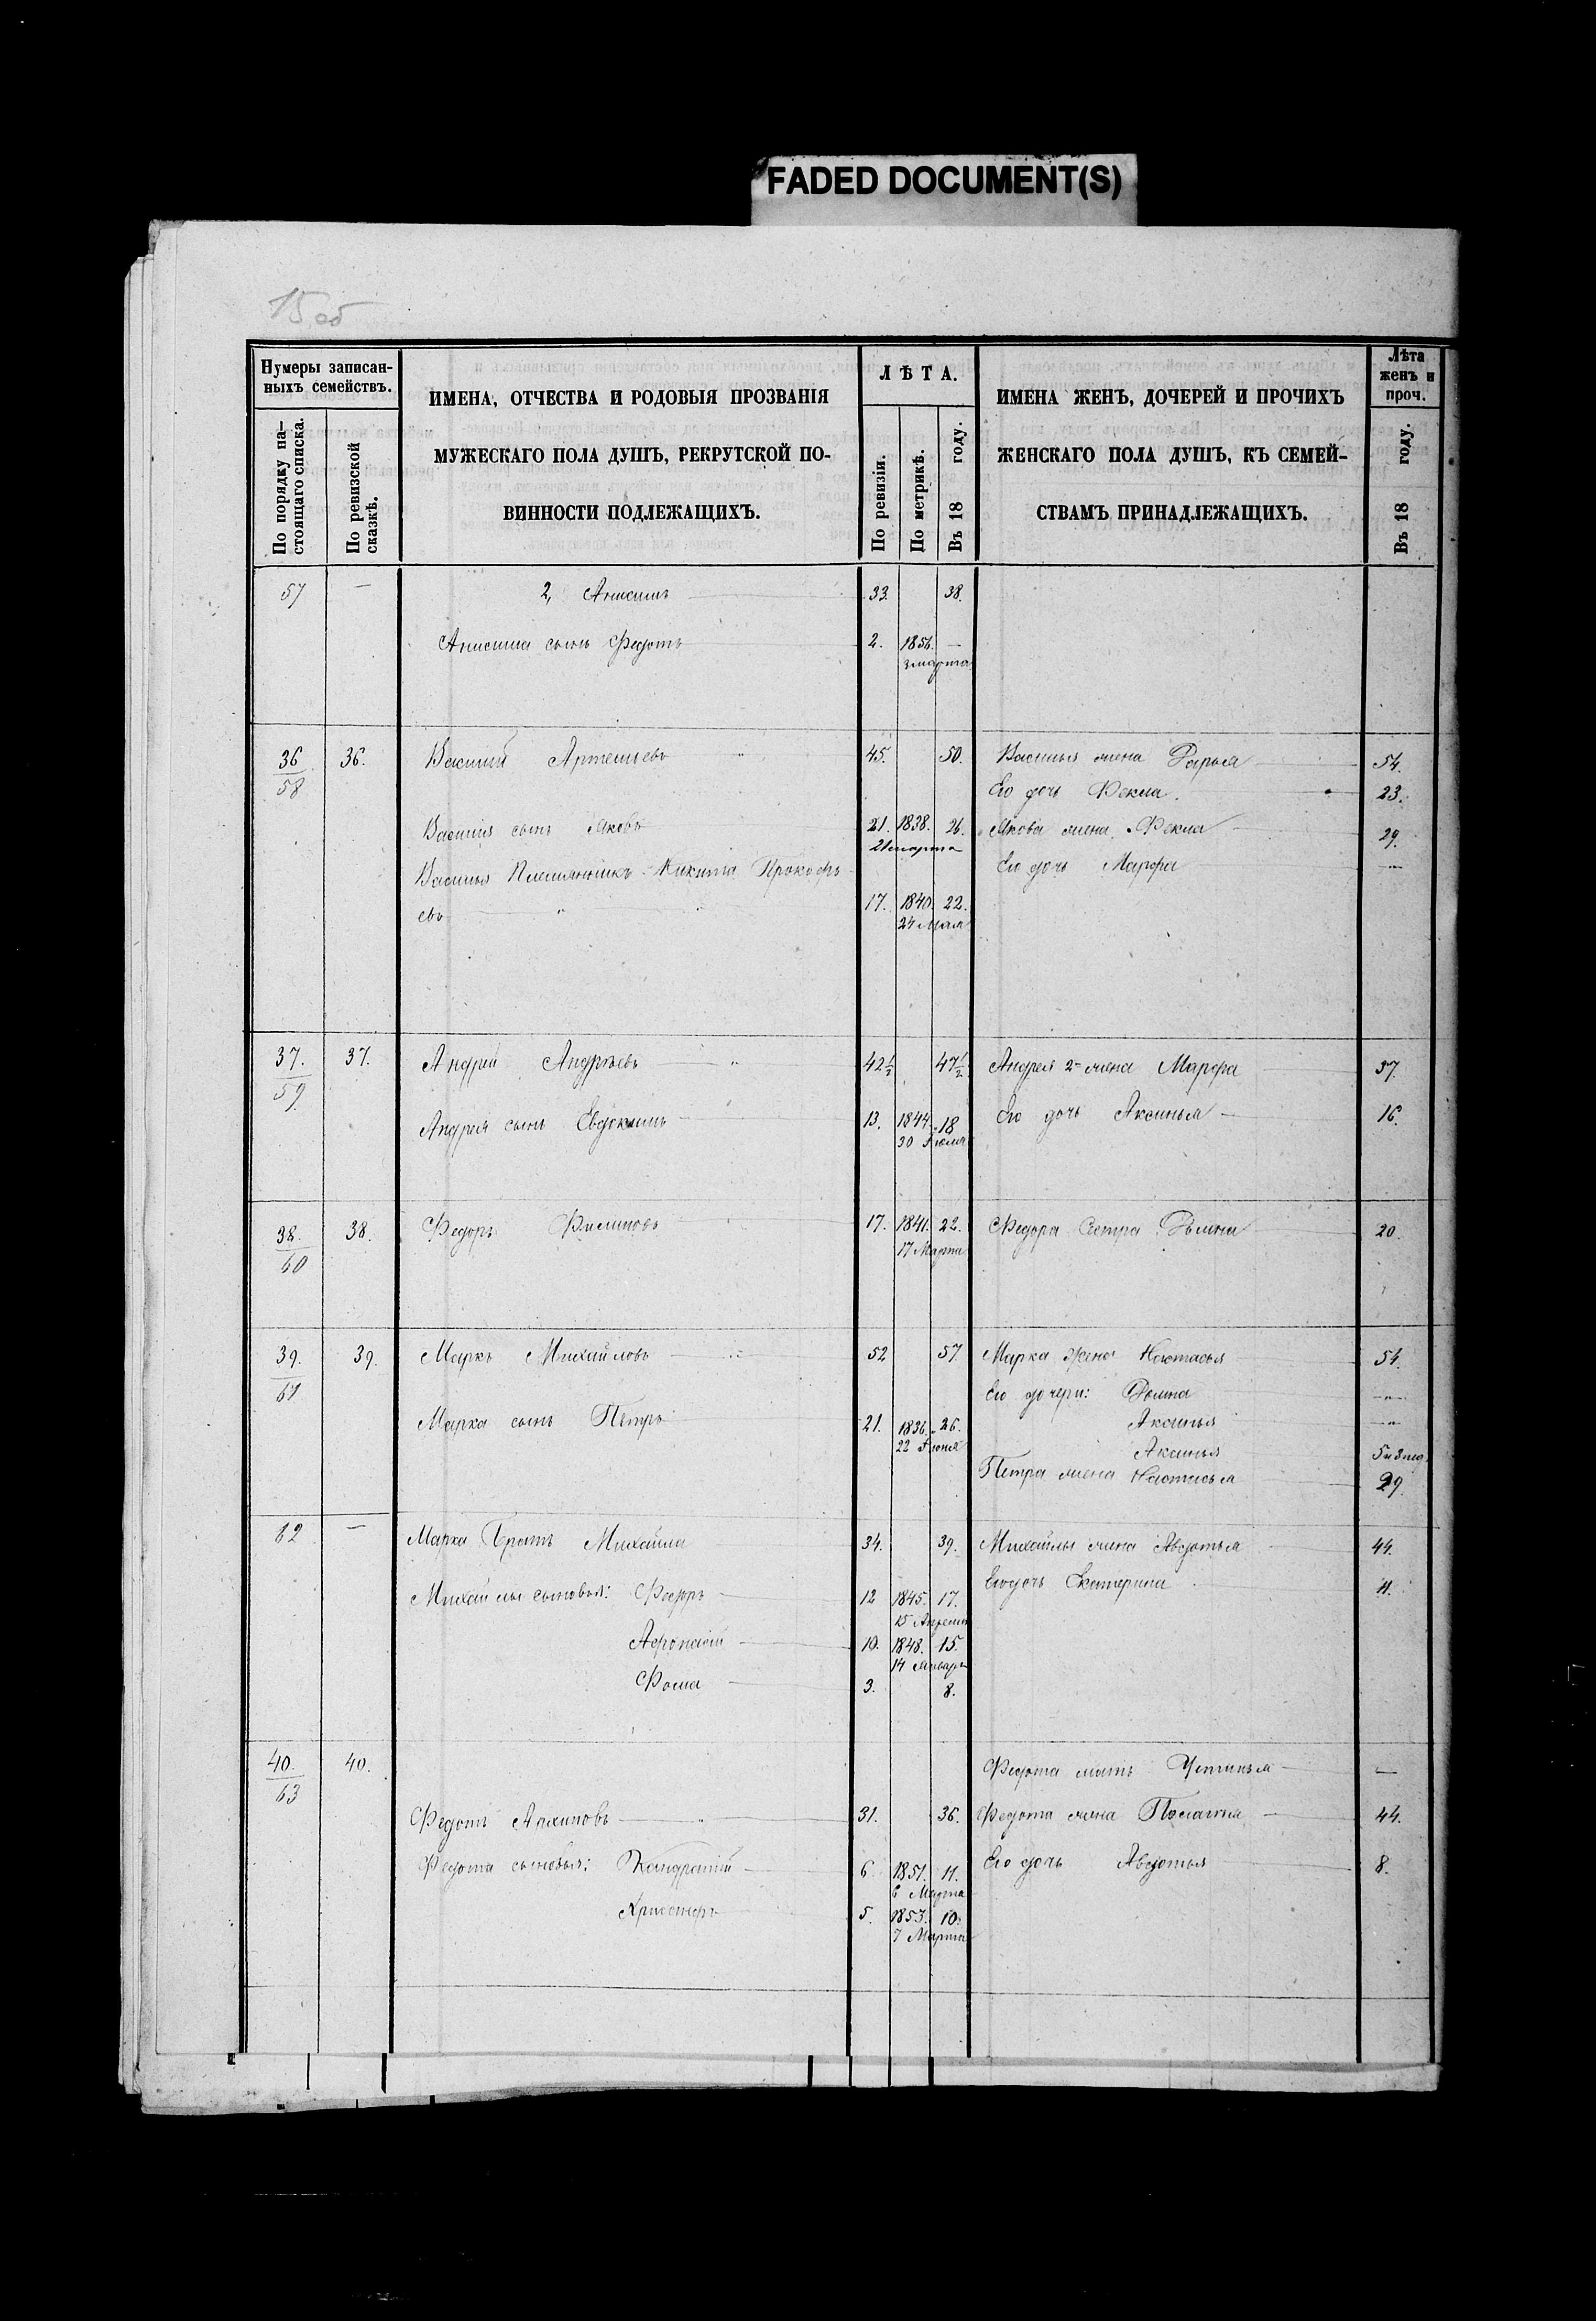 FADED DOCUMENT(S)
15 об
Нумеры записан-
ныхъ семействъ.
По порядку на-
стоящаго списка.
По ревизской
сказкѣ.
ИМЕНА, ОТЧЕСТВА И РОДОВЫЯ ПРОЗВАНІЯ
МУЖЕСКАГО ПОЛА ДУШЪ, РЕКРУТСКОЙ ПО-
ВИННОСТИ ПОДЛЕЖАЩИХЪ.
ЛѢТА.
По ревизіи.
По метрикѣ.
Въ 18 году.
ИМЕНА ЖЕНЪ, ДОЧЕРЕЙ И ПРОЧИХЪ
ЖЕНСКАГО ПОЛА ДУШЪ, КЪ СЕМЕЙ-
СТВАМЪ ПРИНАДЛЕЖАЩИХЪ.
Лѣта
женъ и
проч.
Въ 18 году.
57 — 2, Анисимъ 33. 38.
Анисима сынъ Федотъ 2. 1856. —
3 марта
36 36. Василий Артемьевъ 45. 50. Василья жена Дарья 54.
58 Его дочь Фекла 23.
Василія сынъ Яковъ 21. 1838. 26. Якова жена Фекла 29.
21 марта
Василья Племянникъ Никита Прокофь Его дочь Марфа —
евъ 17. 1840. 22.
24 Мая
37. 37. Андрей Андреевъ 42½ 47½ Андрея 2я жена Марфа 37.
59
Андрея сынъ Евдокимъ 13. 1844. 18 Его дочь Аксинья 16.
30 Июля
38. 38. Федоръ Филиповъ 17. 1841. 22. Федора Сестра 20.
60 17 Марта
39. 39. Маркъ Михайловъ 52 57 Марка Жена Настасья 54.
61 Его дочери:
Марка сынъ Петръ 21. 1836. 26. Аксинья
22 Июня
Аксинья
Петра жена Настасья 29.
62 — Марка Братъ Михайла 34. 39. Михайлы жена Авдотья 44.
Михайлы сыновья: Федоръ 12 1845. 17. Его дочь Екатерина 11.
15 Апреля
Афонасій 10. 1848. 15.
14 Январь
Фома 3. 8.
40. 40. Федота мать Устинья —
63
Федотъ Архиповъ 31. 36. Федота жена Пелагия 44.
Федота сыновья: Кондратій 6 1851. 11. Его дочь Авдотья 8.
6 Марта
Христофоръ 5. 1853. 10.
7 Марта